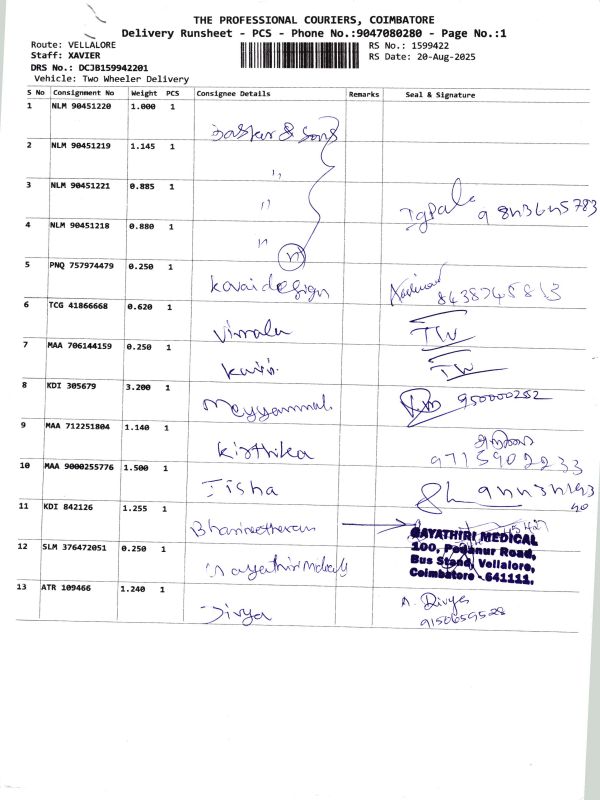 THE PROFESSIONAL COURIERS, COIMBATORE
Delivery Runsheet - PCS - Phone No.:9047080280 - Page No.:1
Route: VELLALORE RS No.: 1599422
Staff: XAVIER RS Date: 20-Aug-2025
DRS No.: DCJB159942201
Vehicle: Two Wheeler Delivery
S No Consignment No Weight PCS Consignee Details Remarks Seal & Signature
1 NLM 90451220 1.000 1 Baskar & Sons
2 NLM 90451219 1.145 1 ,,
3 NLM 90451221 0.885 1 ,,
4 NLM 90451218 0.880 1 ,,
5 PNQ 757974479 0.250 1 Kovai design
6 TCG 41866668 0.620 1 Vimala TW
7 MAA 706144159 0.250 1 TW
8 KDI 305679 3.200 1 Meyyammal 950000252
9 MAA 712251804 1.140 1 Kirthika 9715902233
10 MAA 9000255776 1.500 1 Jisha
11 KDI 842126 1.255 1
12 SLM 376472051 0.250 1 Gayathiri Medicals GAYATHIRI MEDICAL
100, Podanur Road,
Bus Stand, Vellalore,
Coimbatore - 641111.
13 ATR 109466 1.240 1 Divya A. Divya
9150659528